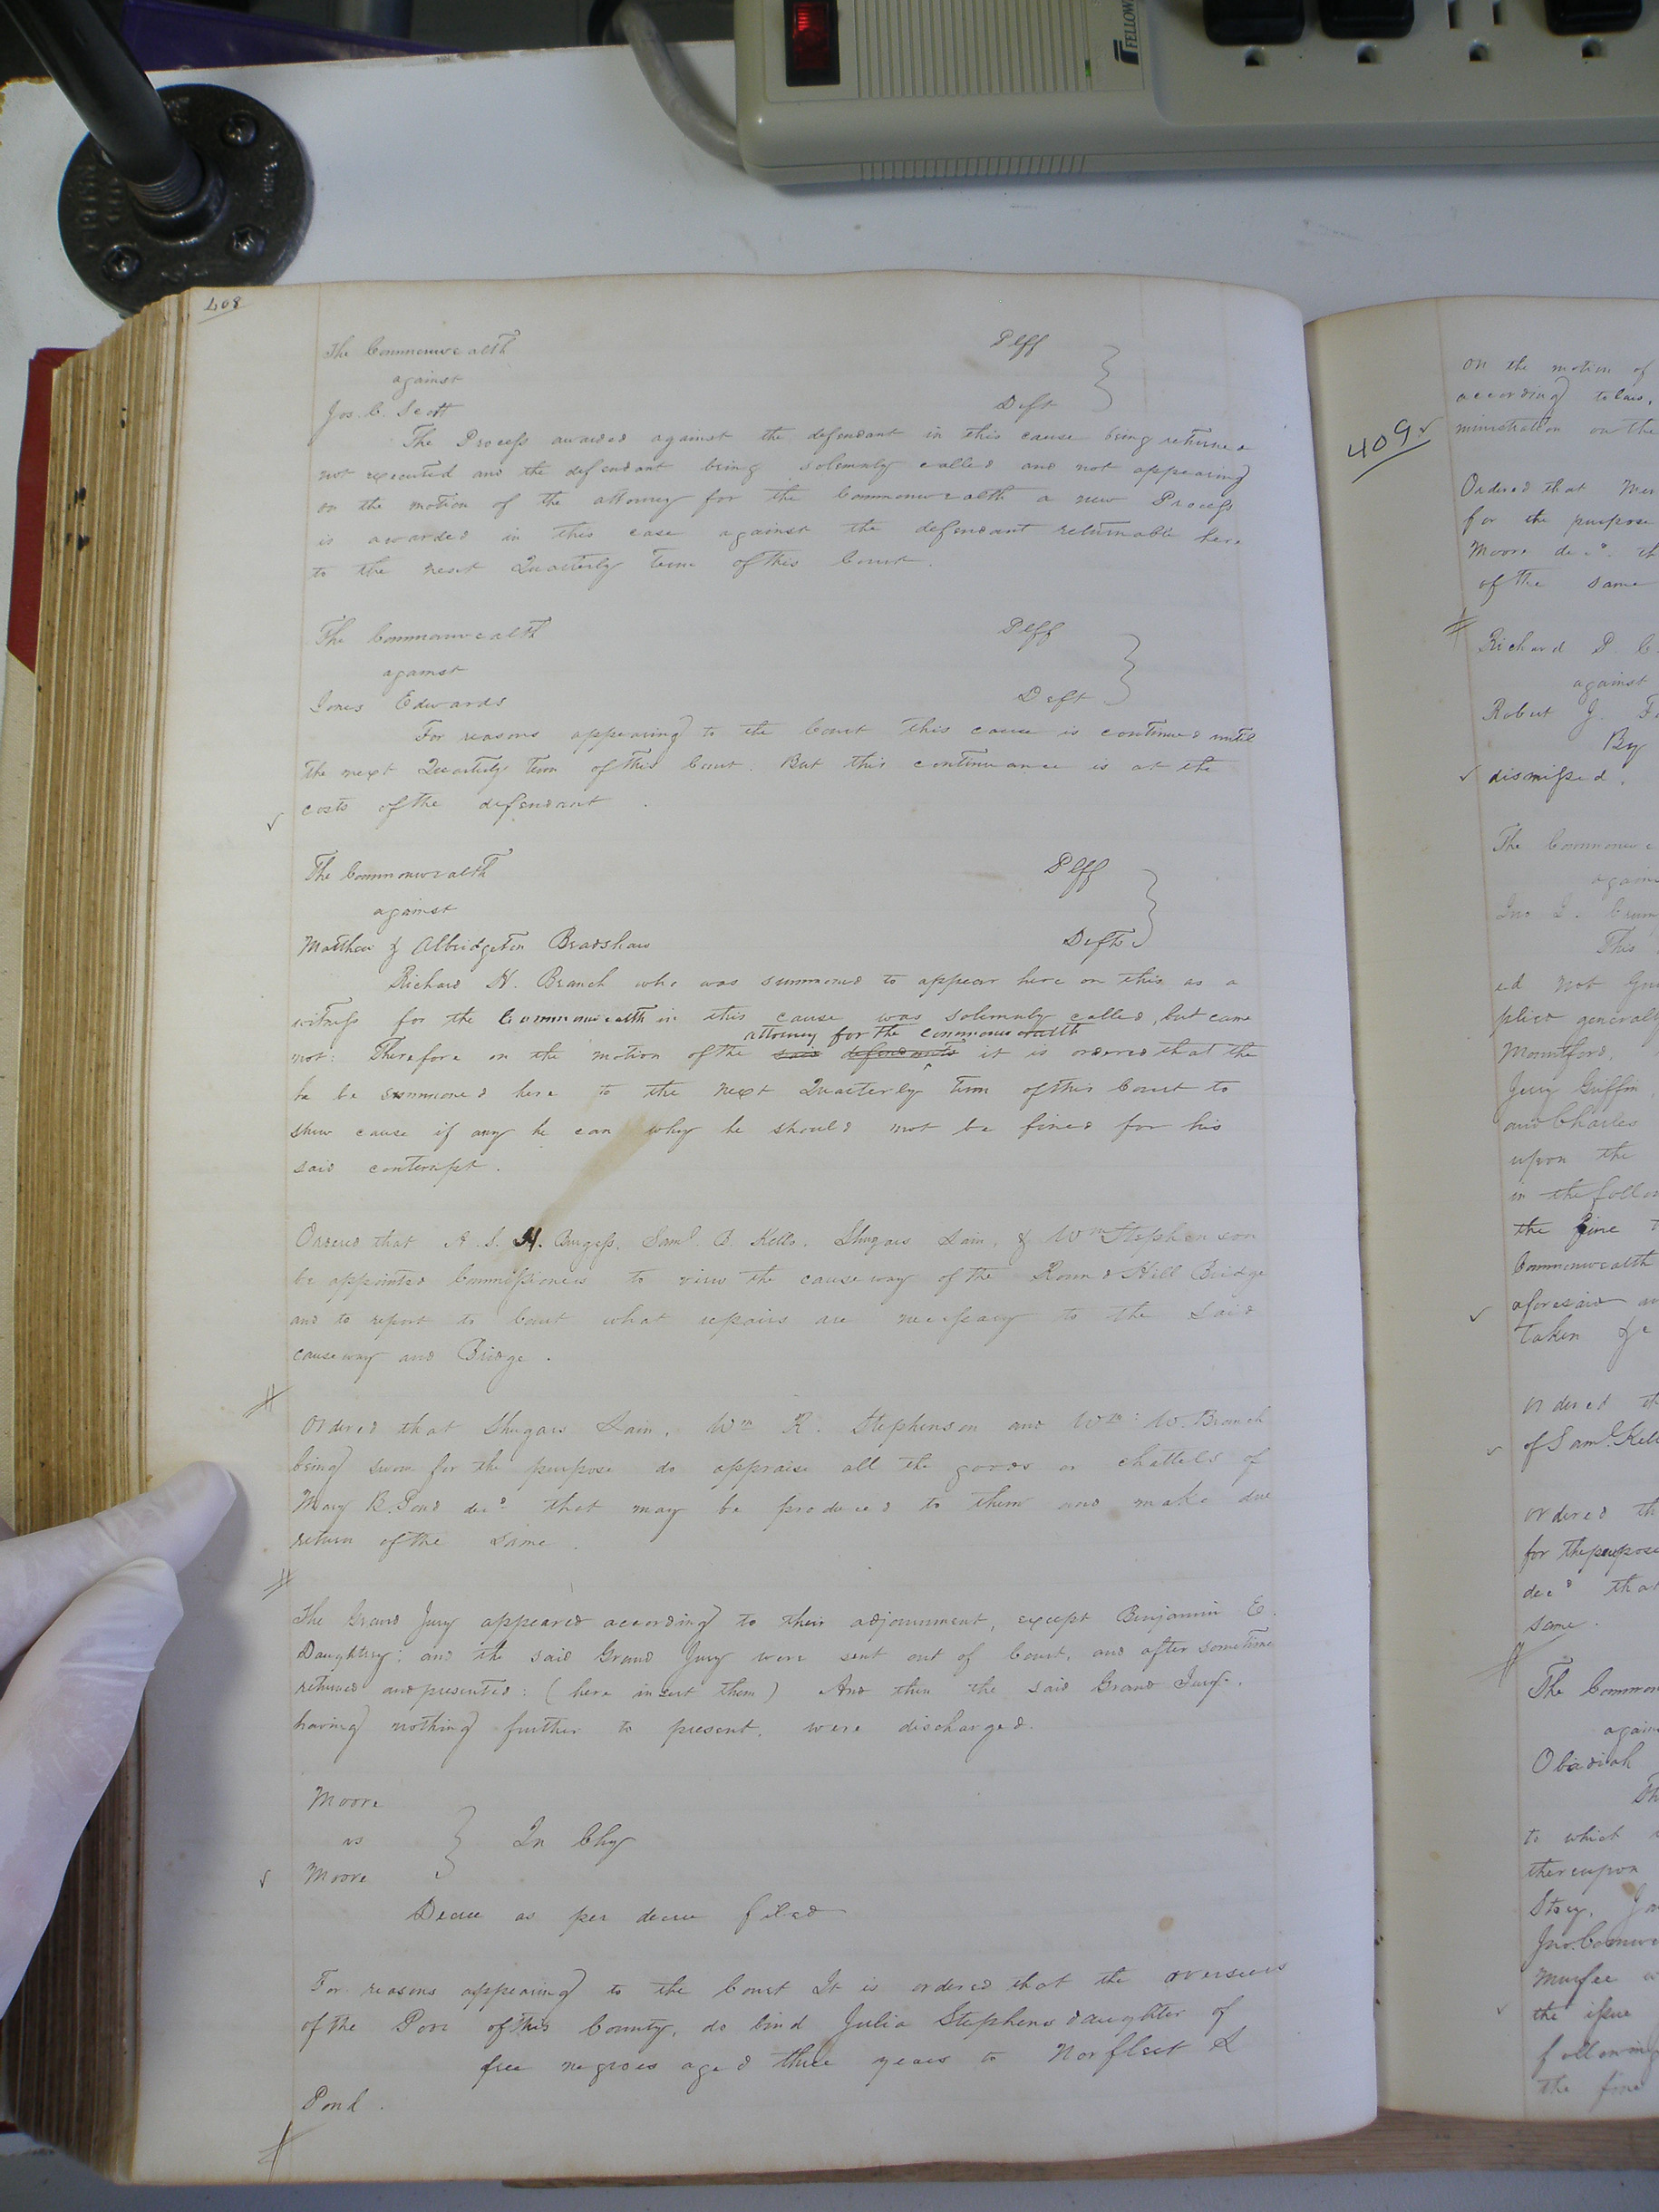 FELLOW
408
The Commonwealth Plff
against
Jos. C. Scott Deft
The Process awarded against the defendant in this cause being returned
not executed and the defendant being solemnly called and not appearing
on the motion of the attorney for the Commonwealth a new Process
is awarded in this case against the defendant returnable here
to the next Quarterly Term of this Court.
The Commonwealth Plff
against
Jones Edwards Deft
For reasons appearing to the Court this cause is continued until
the next Quarterly Term of this Court. But this continuance is at the
costs of the defendant.
The Commonwealth Plff
against
Matthew & Albridgeton Bradshaw Defts
Richard H. Branch who was summoned to appear here on this as a
witness for the Commonwealth in this cause was solemnly called, but came
attorney for the commonwealth
not: Therefore on the motion of the said defendants it is ordered that the
he be summoned here to the next Quarterly Term of this Court to
shew cause if any he can why he should not be fined for his
said contempt.
Ordered that A. S. H. Burgess, Saml. B. Kello, Shugars Lain, & Wm Stephenson
be appointed Commissioners to view the causeway of the Round Hill Bridge
and to report to Court what repairs are necessary to the said
causeway and Bridge.
Ordered that Shugars Lain, Wm R. Stephenson and Wm: W. Branch
being sworn for the purpose do appraise all the goods or chattels of
Mary B. Pond decd. that may be produced to them and make due
return of the same.
The Grand Jury appeared according to their adjournment, except Benjamin E.
Daughtrey; and the said Grand Jury were sent out of Court, and after sometime
returned and presented: (here insert them) And then the said Grand Jury.
having nothing further to present, were discharged.
Moore
vs In Chy
Moore
Decree as per decree filed
For reasons appearing to the Court It is ordered that the overseers
of the Poor of this County, do bind Julia Stephens daughter of
free negroes aged three years to Norfleet L
Pond.
409
on the motion of
according to law,
ministration on the
Ordered that
for the purpose
Moore decd. th
of the same
Richard P. C
against
Robert J. F
By
dismissed.
The Commonwe
again
Jno
This
ed not Gu
plied generall
Mountford,
Jerry Griffin
and Charles
upon the
in the follo
the fine
Commonwealth
aforesaid an
Taken &c
ordered th
of Saml. Kell
ordered th
for the purpose
decd that
same.
The Common
again
Obadiah
Th
to which
thereupon
Story, Ja
Murfee
the issue
following
the fine